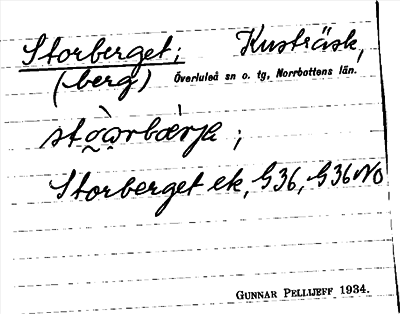 Storberget; Kusträsk,
(berg) Överluleå sn o. tg, Norrbottens län.
Storberget ek, G36, G36NO
GUNNAR PELLIJEFF 1934.